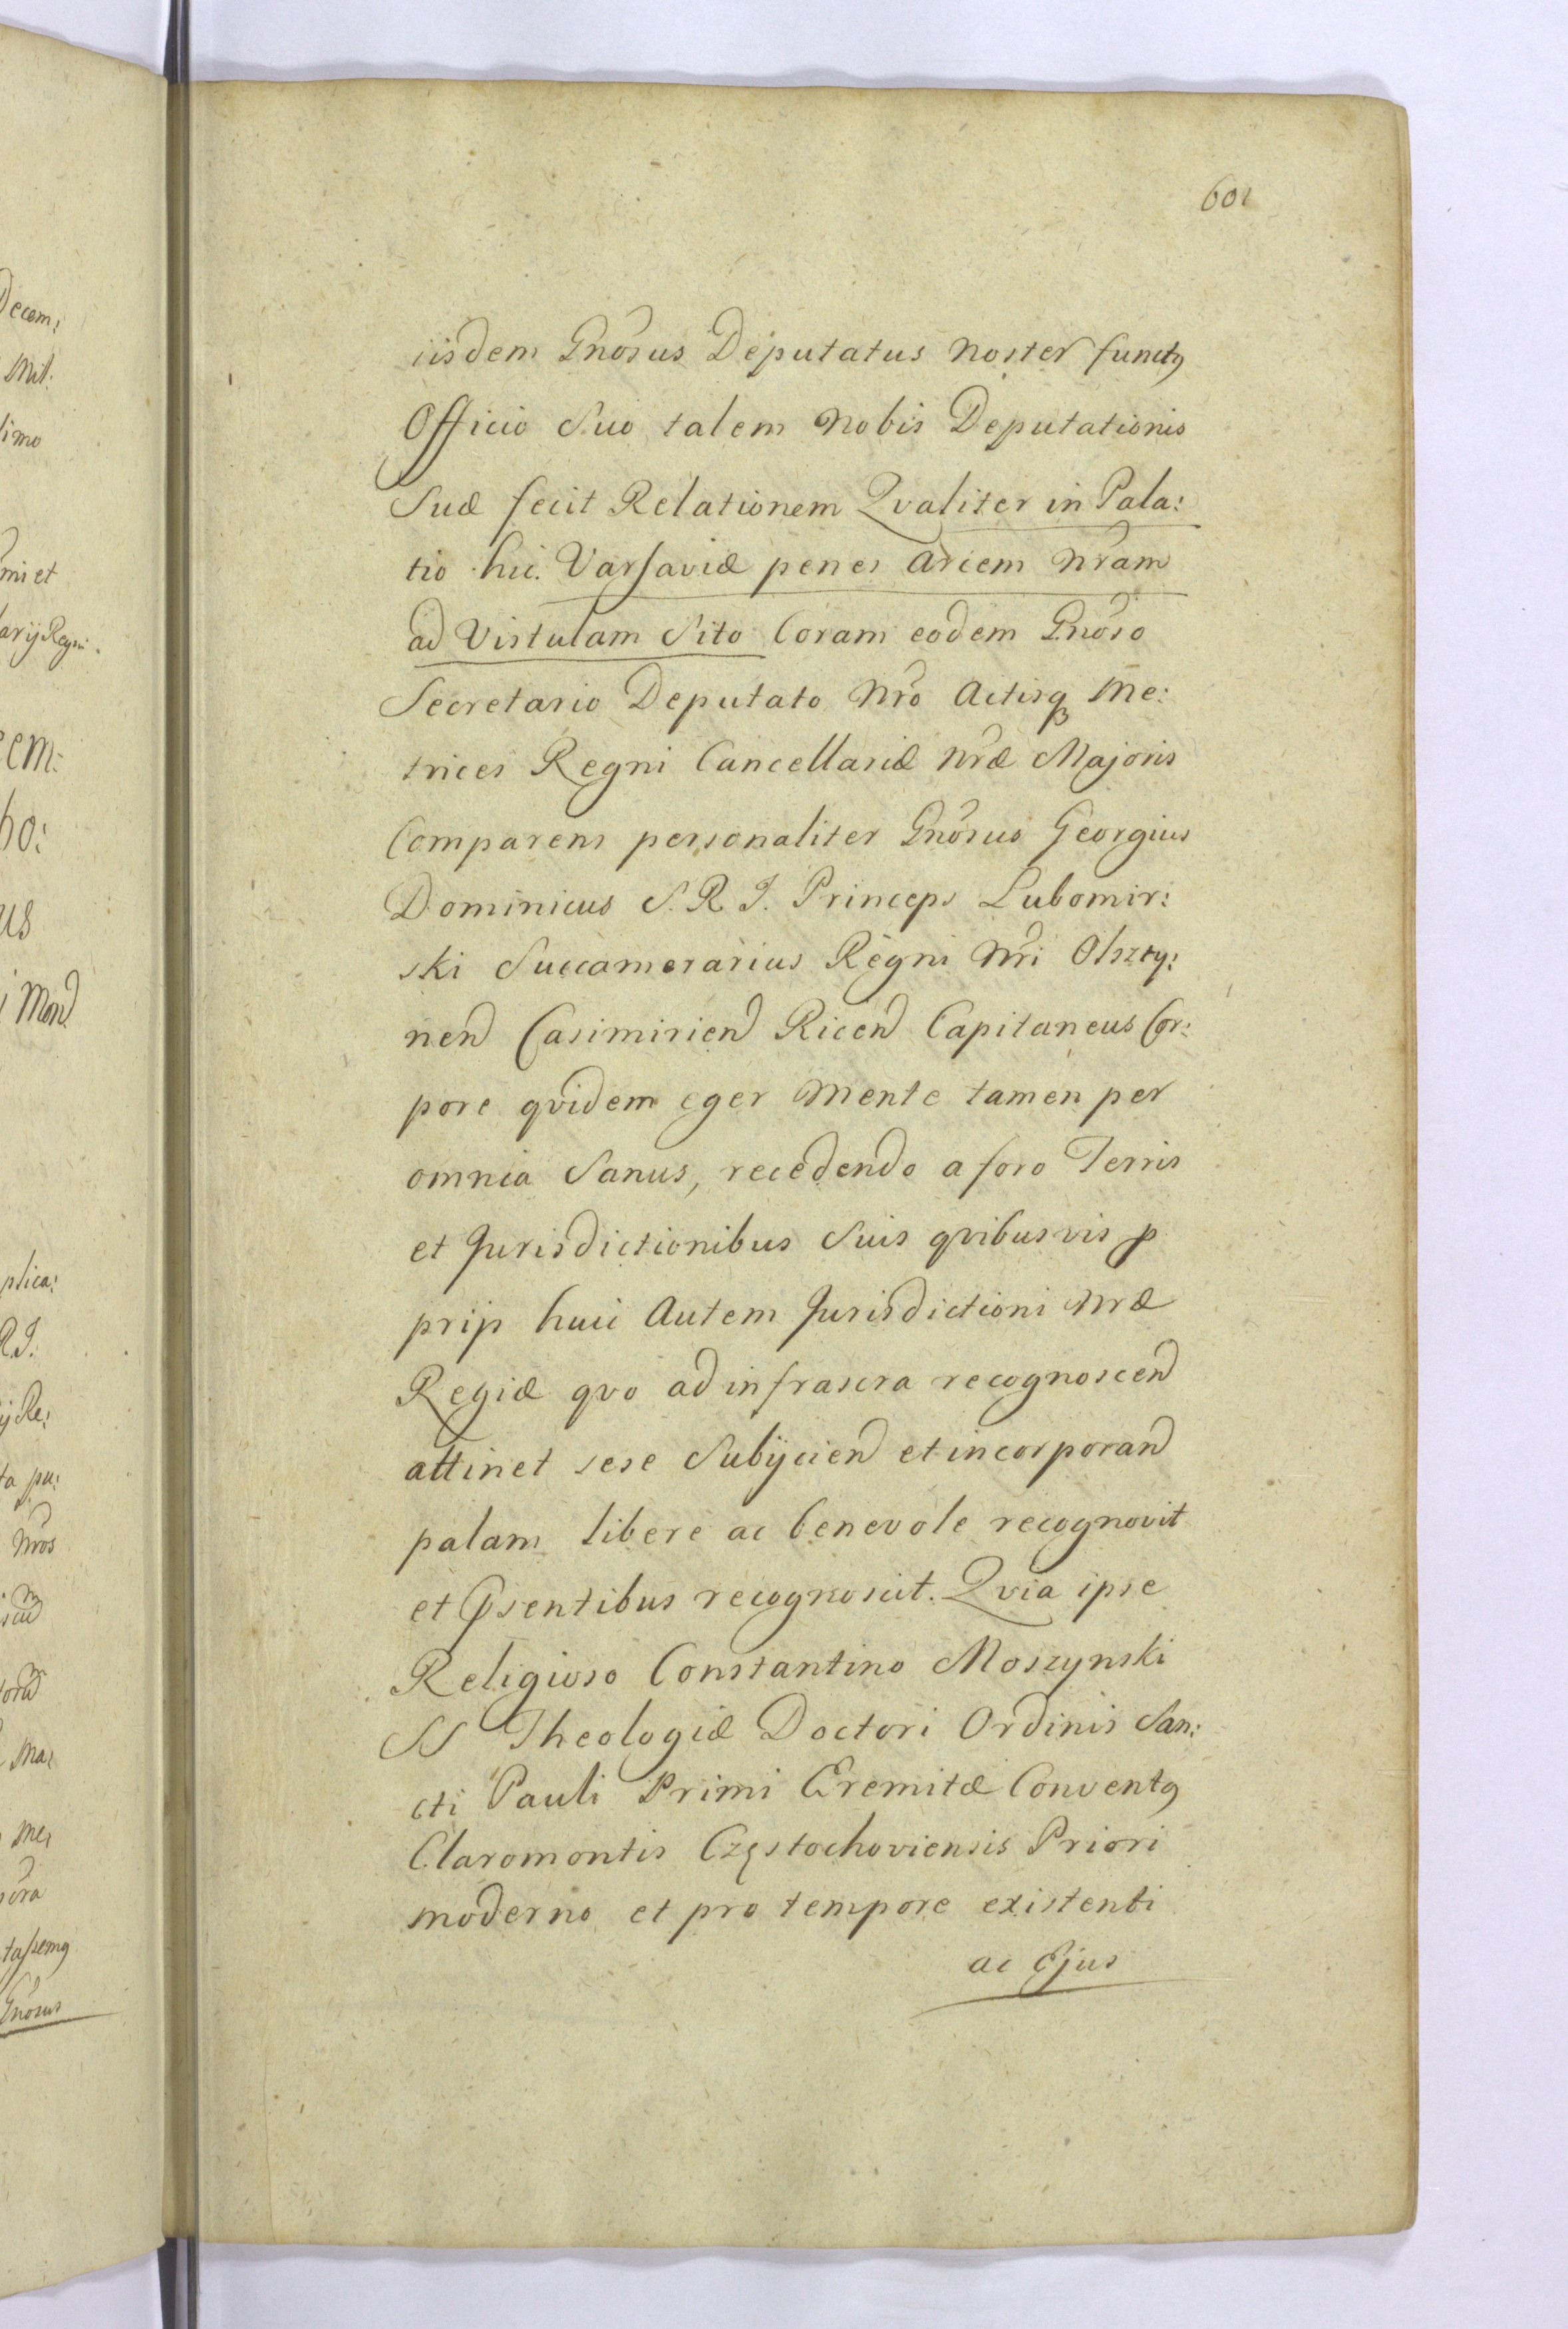 601
iisdem Gnosus Deputatus noster functq
Officio Suo talem nobis Deputationis
Suæ fecit Relationem Qvaliter in Pala:
tio hic Varsaviæ penes Arcem nram
ad Vistulam Sito Coram eodem Gnoso
Secretario Deputato Nro Actisq Me:
trices Regni Cancellariæ nræ Majoris
Comparens personaliter Gnosus Georgius
Dominicus S. R. I. Princeps Lubomir:
ski Succamerarius Regni Nri Olszty:
nen Casimirien Ricen Capitaneus Cor:
pore qvidem eger Mente tamen per
omnia Sanus, recedendo a foro Terris
et Jurisdictionibus Suis qvibusvis p
prijs huic Autem Jurisdictioni Nræ
Regiæ qvo ad infrascra recognoscen
attinet sese Subijcien et incorporan
palam libere ac benevole recognovit
et Psentibus recognoscit. Qvia ipse
Religioso Constantino Moszynski
SS Theologiæ Doctori Ordinis San:
cti Pauli Primi Eremitæ Conventq
Claromontis Częstochoviensis Priori
moderno et pro tempore existenti
ac Ejus
Decem:
Mil:
mi et
arij Regni.
cm:
ho:
us
plica:
R. I.
ij Re:
ta pu:
Nros
Ma:
Me:
Gnosus